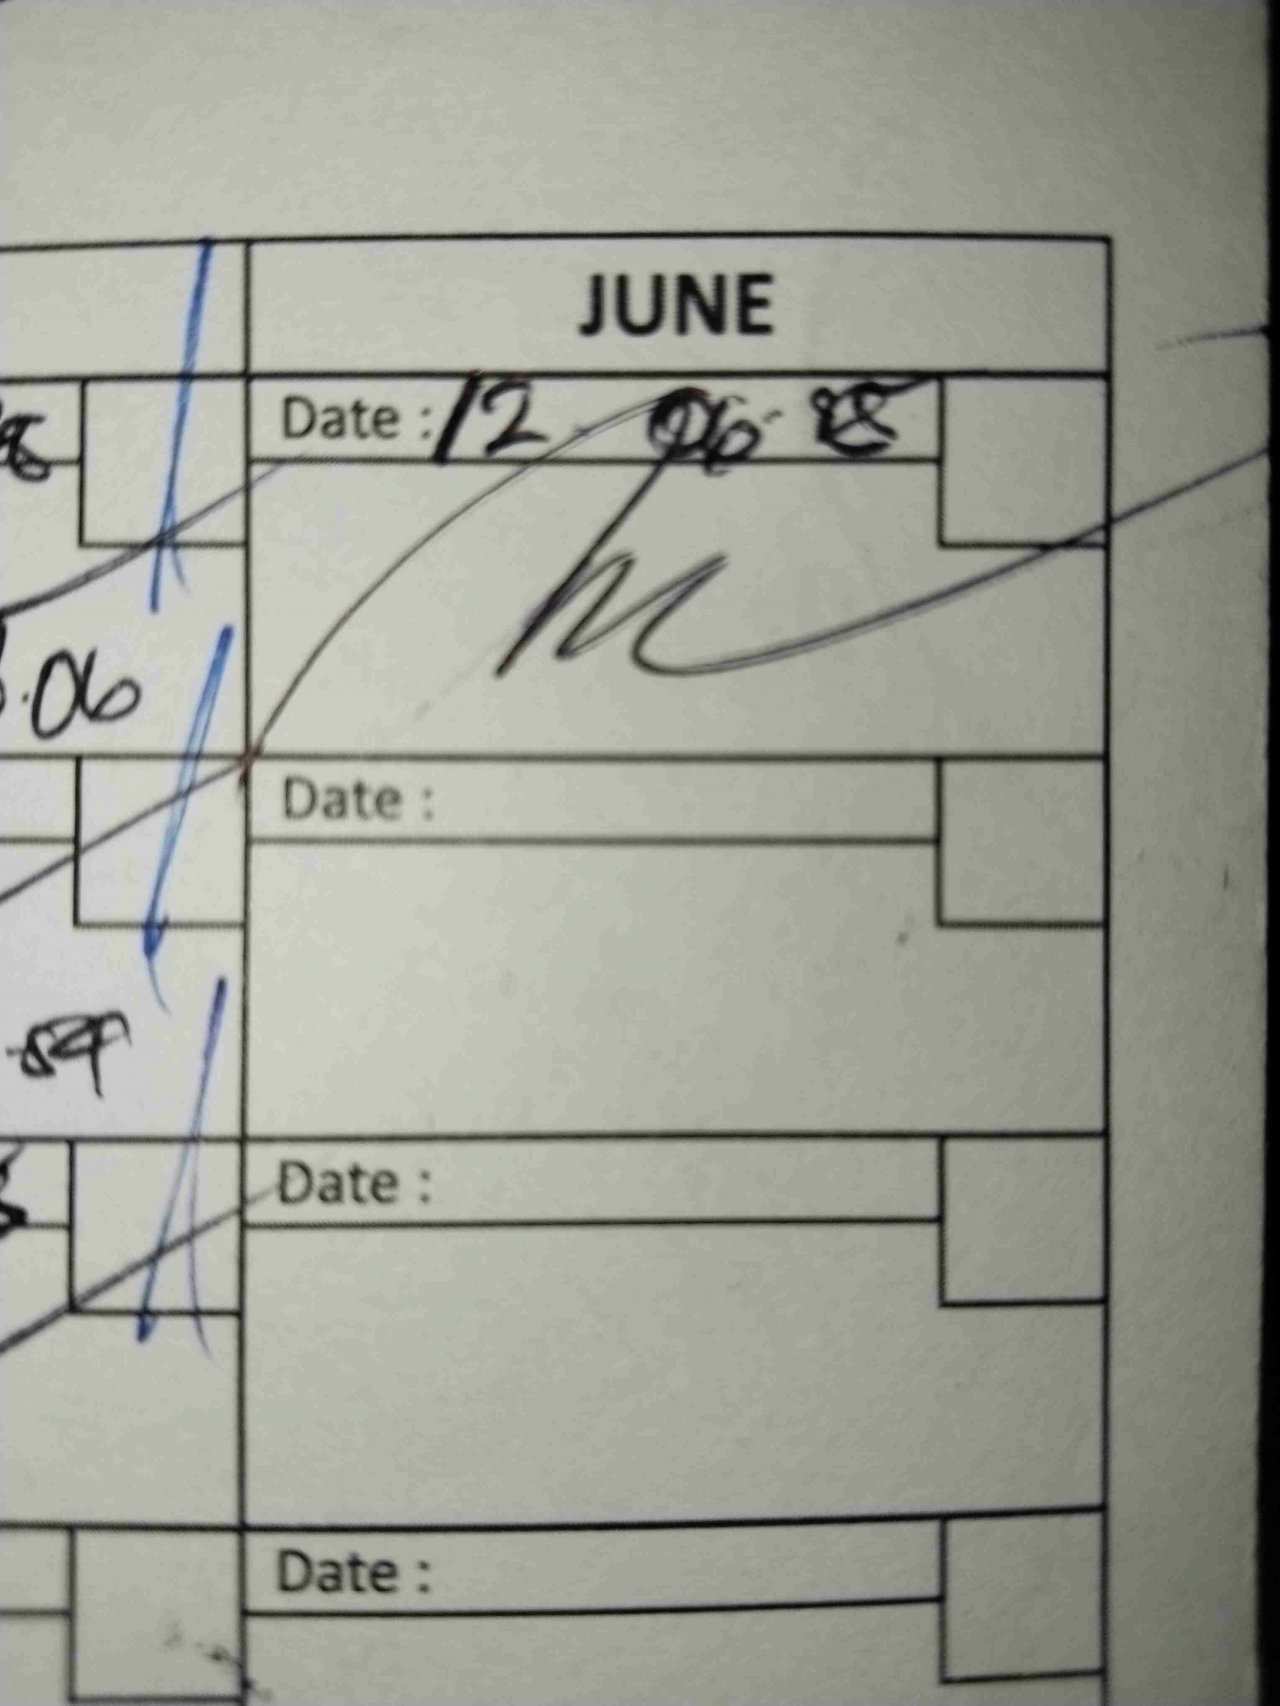 JUNE
Date : 12 06
.06
Date :
.59
Date :
Date :